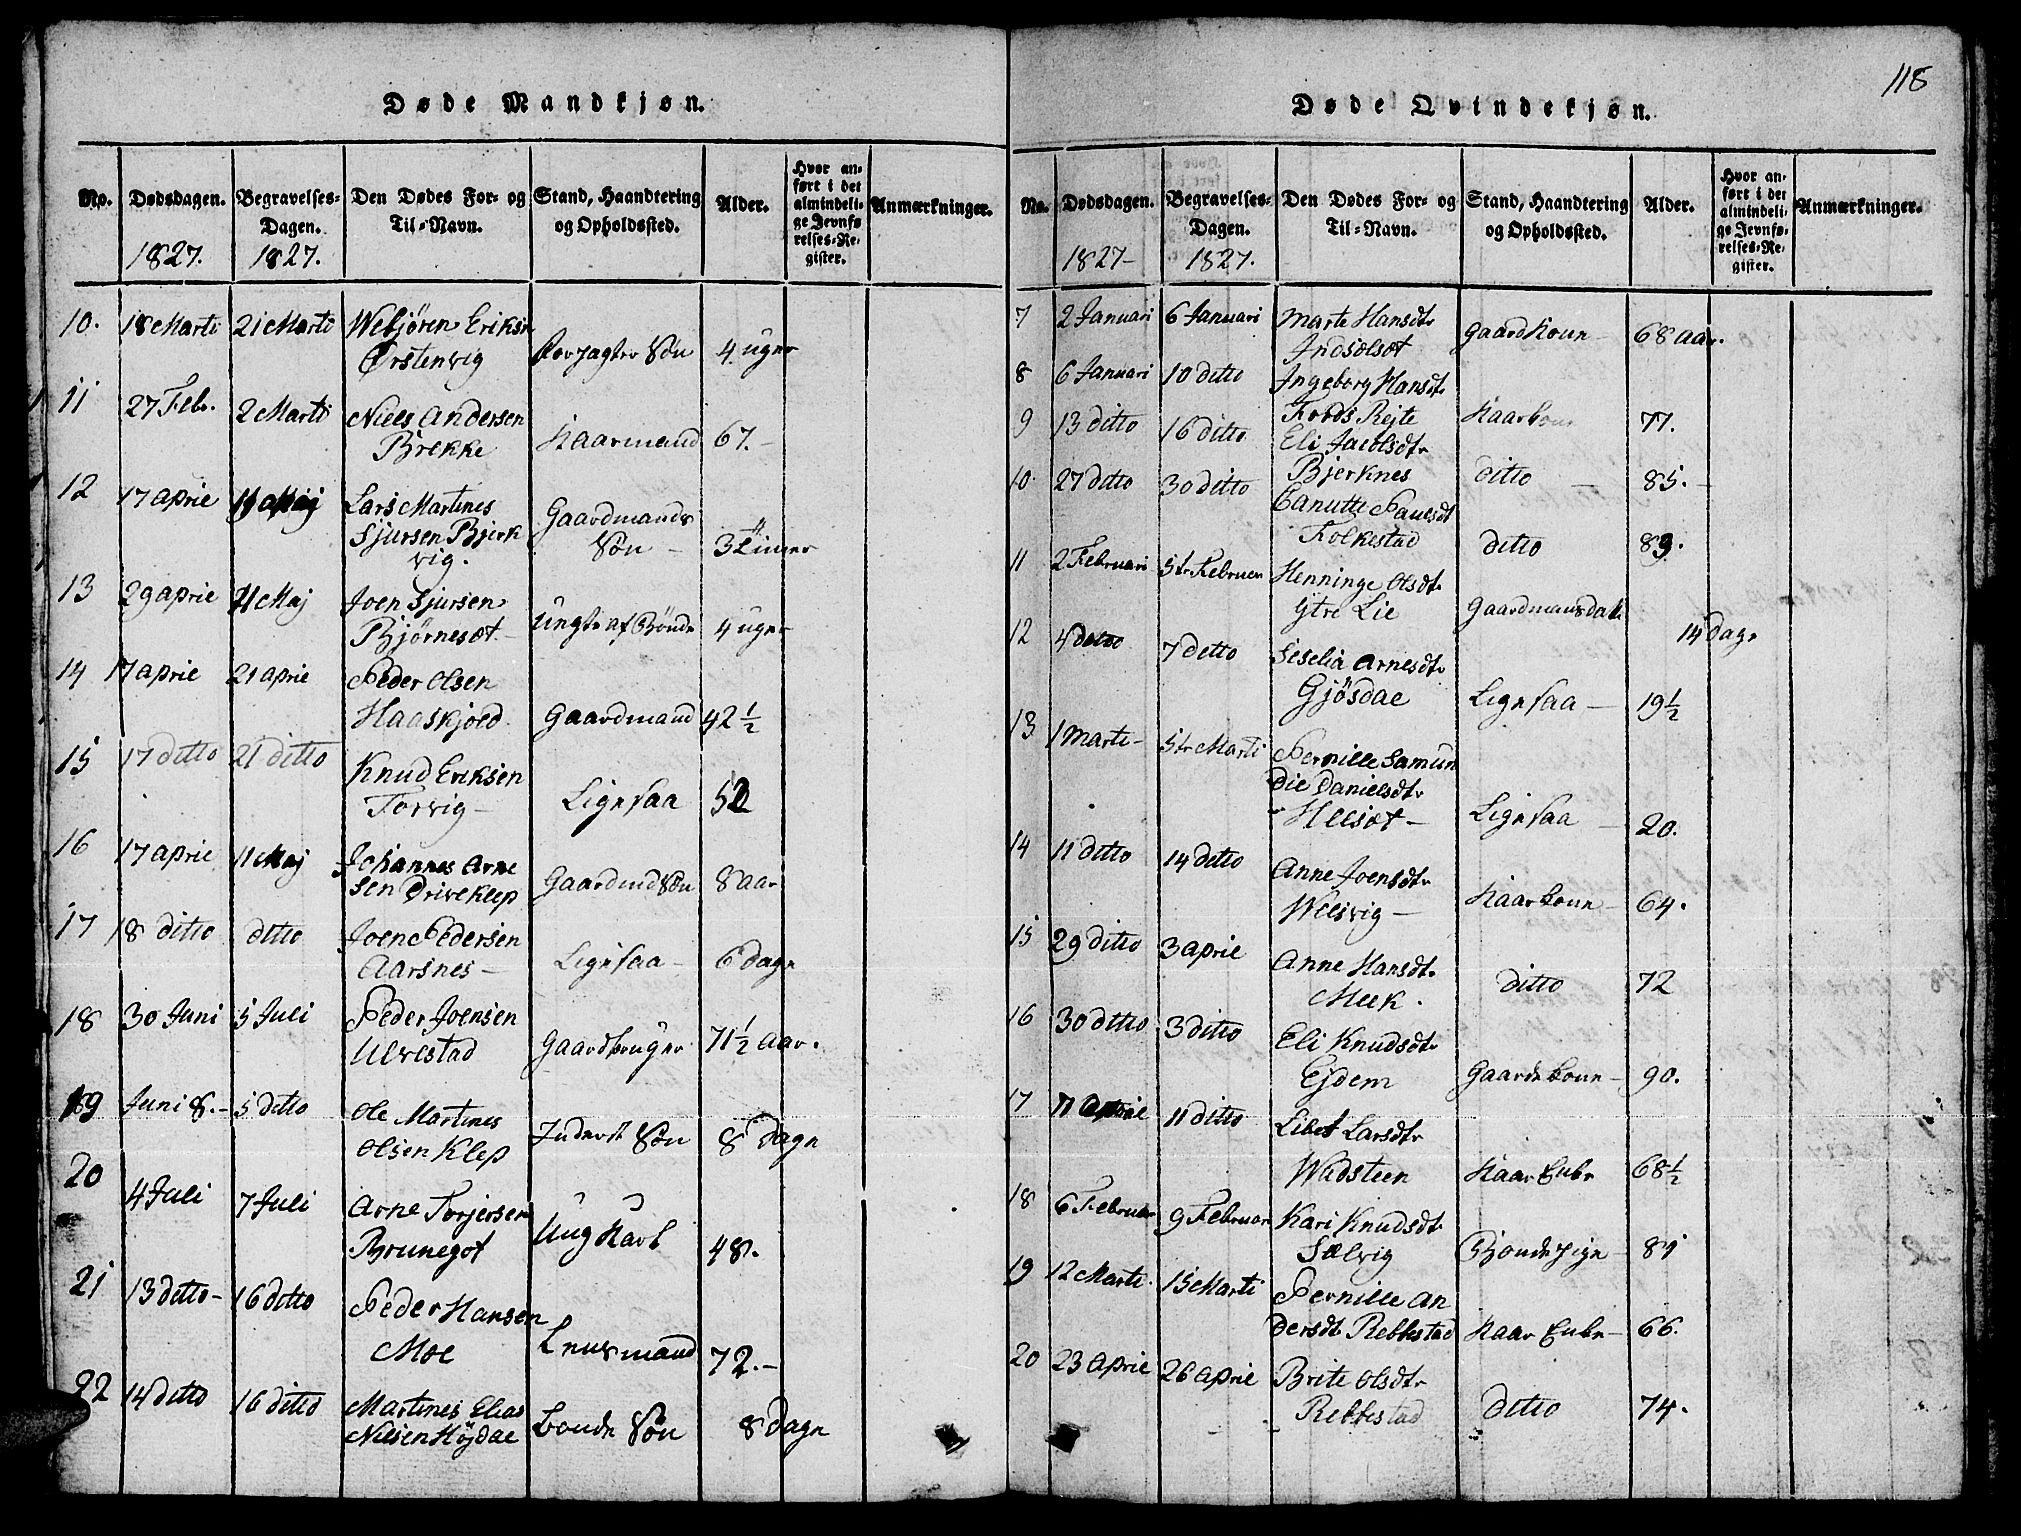 118
Døde Mandkjøn.
No. Dødsdagen. Begravelses-Dagen. Den Dødes For- og Til-Navn. Stand, Haandtering og Opholdssted. Alder. Hvor anført i det almindelige Jevnførelses-Register. Anmærkninger.
1827. 1827.
10. 18 Marti 21 Marti Webjören Eriksn
Ørstenvig Søn 4 uger
11 27 Febr. 2 Marti Niels Andersen
Brekke Kaarmand 67.-
12 17 april Maj Lars Martines Gaardmands
Sjursen Bjerk Søn - 3 Timer
vig.
13 29 april 11 Maj Joen Sjursen
Bjørneset - ungte af Bönde 4 uger
14 17 april 21 april Peder Olsen
Haaskjold Gaardmand 42 1/2
15 17 ditto 21 ditto Knud Eriksen
Torvig - Ligesaa 52
16 17 april 11 Maj Johannes Arne
sen Driveklep Gaardmd Søn 8 aar
17 18 ditto ditto Joen Pedersen
Aarsnes - Ligesaa - 6 Dage
18 30 Juni 5 Juli Peder Joensen
Ulvestad Gaardbruger 71 1/2 aar.
19 Juni 8.- 5 ditto Ole Martines
Olsen Klep Inderst Søn 8 Dage
20 4 Juli 7 Juli Arne Torjersen
Brunegot Ung Karl 48.
21 13 ditto - 16 ditto Peder Hansen
Moe Lensmand 72.-
22 14 ditto 16 ditto Martines Elias
Nilsen Höjdal Bonde Søn 8 Dage
Døde Qvindekjøn.
No. Dødsdagen. Begravelses-Dagen. Den Dødes For- og Til-Navn. Stand, Haandtering og Opholdssted. Alder. Hvor anført i det almindelige Jevnførelses-Register. Anmærkninger.
1827- 1827.
7 2 Januari 6 Januari Marte Hansdtr
Indselset Gaardkoun - 68 aar.
8 6 Januari 10 ditto Ingeborg Hansdtr
Fords Rejte Kaarkoun 77.
9 13 ditto 16 ditto Eli Jacobsdtr
Bjerknes ditto - 85.-
10. 27 ditto 30 ditto Canutte Paulsdt
Folkestad ditto 89.
11 2 Februari 5te Februar Henninge Olsdtr
Ytre Lie Gaardmansdatr 14 Dage
12 4 ditto 7 ditto Seselia Arnesdtr
Gjøsdal Ligesaa - 19 1/2
13 1 Marti - 5te Marti Pernille Samun
die Danielsdtr
Helset - Ligesaa - 20.
14 11 ditto 14 ditto Anne Joensdtr
Welsvig - Kaarkoun - 64.
15 29 ditto 3 april Anne Hansdtr
Meek. ditto 72
16 30 ditto 3 ditto Eli Knudsdtr
Ejdem Gaardekoun - 90.
17 april 11 ditto Libet Larsdtr
Wadsteen Kaar Enke 68 1/2
18 6 Februar 9 Februar Kari Knudsdtr
Sælvig Bjondepige - 81
19 12 Marti 15 Marti Pernille An
dersdt. Rekkestad Kaar Enke - 66.
20 23 april 26 april Brite Olsdtr
Rekkestad ditto 74.